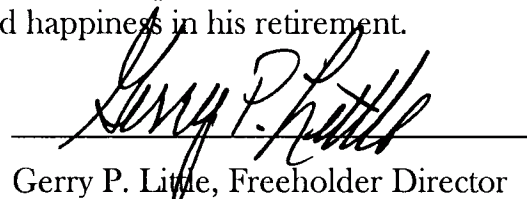 d happiness in his retirement.
Gerry P. Little
Gerry P. Little, Freeholder Director